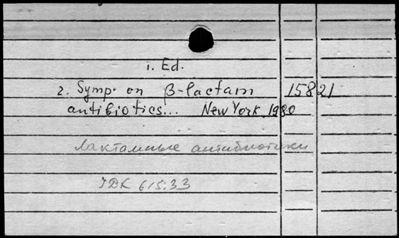 1. Ed.
2. Symp. on β-lactam 15821
antibiotics... New York, 1980
Лактамные антибиотики
УДК 615.33